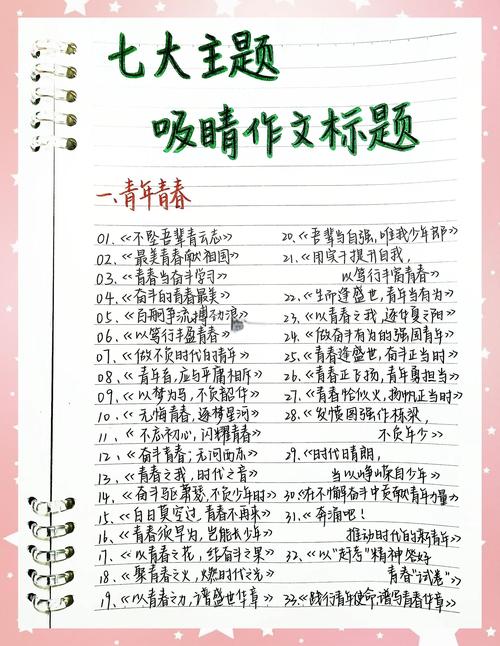 七大主题
吸睛作文标题
一、青年青春
01.《不坠吾辈青云志》
02.《最美青春献祖国》
03.《青春当奋斗学习》
04.《奋斗的青春最美》
05.《百舸争流搏动浪》
06.《以笃行丰盈青春》
07.《做不负时代的青年》
08.《青年者,应与平庸相斥》
09.《以梦为马,不负韶华》
10.《无悔青春,逐梦星河》
11.《不忘初心,闪耀青春》
12.《奋斗青春;无问西东》
13.《青春之我,时代之音》
14.《奋斗驱萧瑟,不负少年时》
15.《白日莫空过,青春不再来》
16.《青春须早为,岂能长少年》
17.《以青春之花,结奋斗之果》
18.《聚青春之火,燃时代之光》
19.《以青春之力,谱盛世华章》
20.《吾辈当自强,唯我少年郎》
21.《用实干提升自我,
以笃行丰富青春》
22.《生而逢盛世,青年当有为》
23.《以青春之我,逐华夏之阳》
24.《做奋斗有为的强国青年》
25.《青春逢盛世,奋斗正当时》
26.《青春正飞扬,青年勇担当》
27.《青春恰似火,扬帆正当时》
28.《发愤图强作栋梁,
不负年少》
29.《时代日晴朗,
当以峥嵘自少年》
30《在不懈奋斗中贡献青年力量》
31.《奔涌吧!
推动时代的新青年》
32.《以"赶考"精神答好
青春"试卷"》
33.《践行青年使命,谱写青春华章》